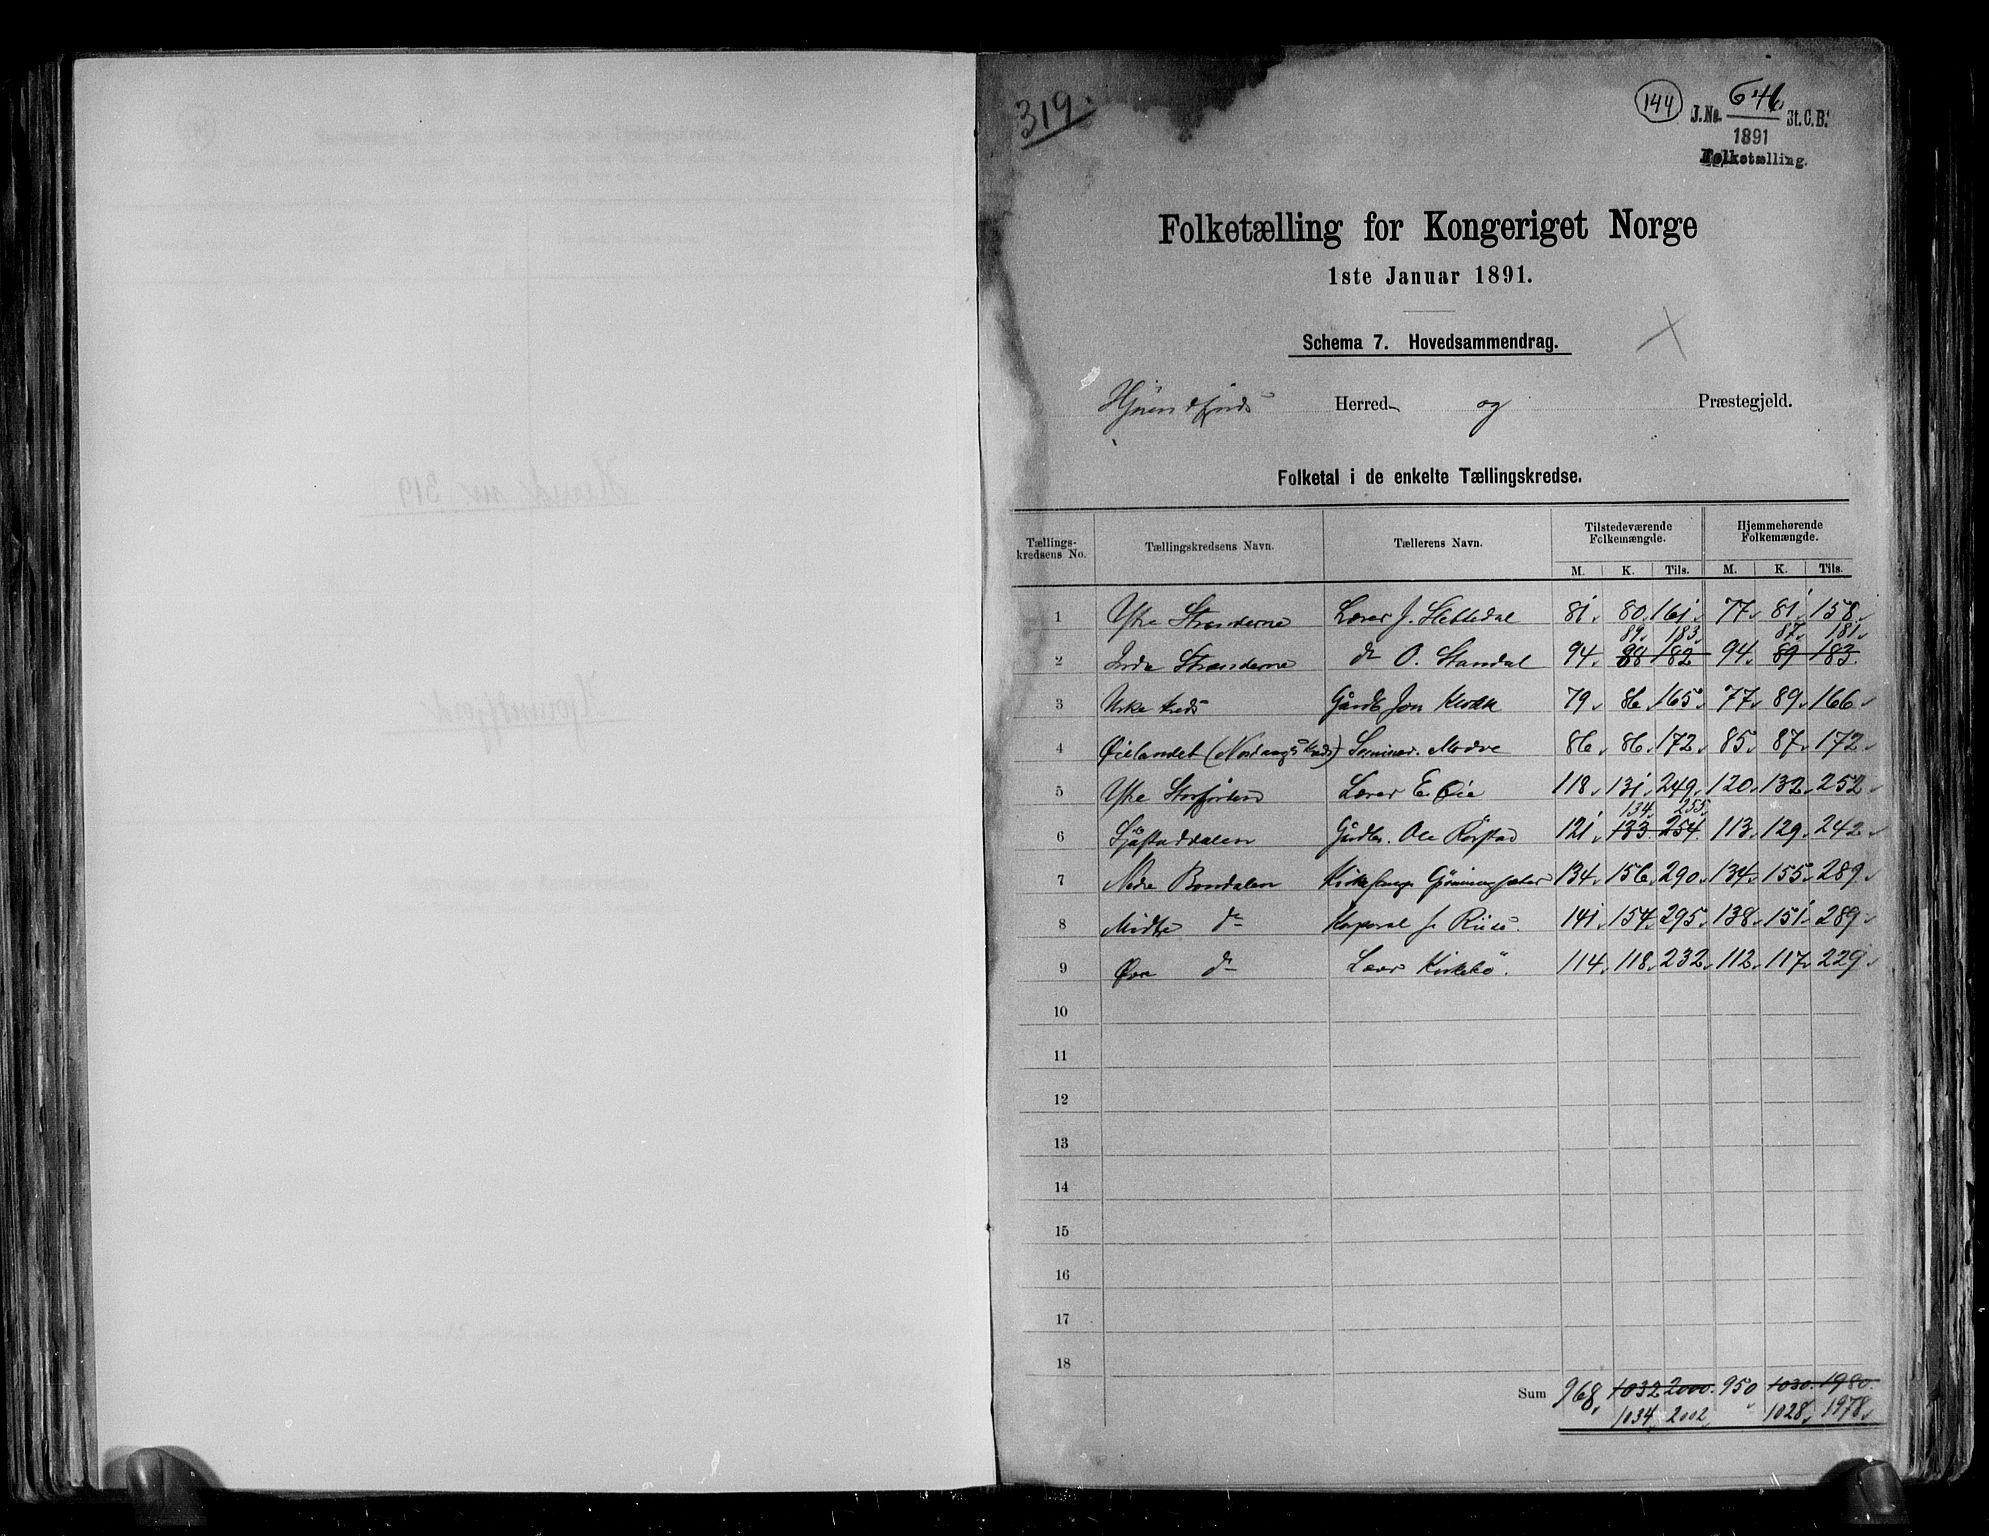 319.
144
J.No. 646 St.C.B.
1891
Folketælling.
Folketælling for Kongeriget Norge
1ste Januar 1891.
Schema 7. Hovedsammendrag.
Hjørendfjords Herred og Præstegjeld.
Folketal i de enkelte Tællingskredse.
Tællings-kredsens No. Tællingskredsens Navn. Tællerens Navn. Tilstedeværende Folkemængde. Hjemmehørende Folkemængde.
M. K. Tils. M. K. Tils.
1 Ytre Stranderne Lærer J. Slettedal 81 80 161 77 81 158
89 183 87 181
2 Indre Stranderne do O. Standal 94 88 182 94 89 183
3 Urke kreds Gårdb. Jon 79 86 165 77 89 166
4 Øielandet (Nordangskreds) Seminar. 86 86 172 85 87 172
5 Ytre Storfjorden Lærer E Øie 118 131 249 120 132 252
134 255
6 Sjåstaddalen Gårdbr. Ole Rørstad 121 133 254 113 129 242
7 Nedre Bondalen Kirkesanger 134 156 290 134 155 289
8 Midtre do Korporal J. Riise 141 154 295 138 151 289
9 Øvre do Lærer Kirkebö 114 118 232 112 117 229
10
11
12
13
14
15
16
17
18
Sum 968 1032 2000 950 1030 1980
1034 2002 1028 1978